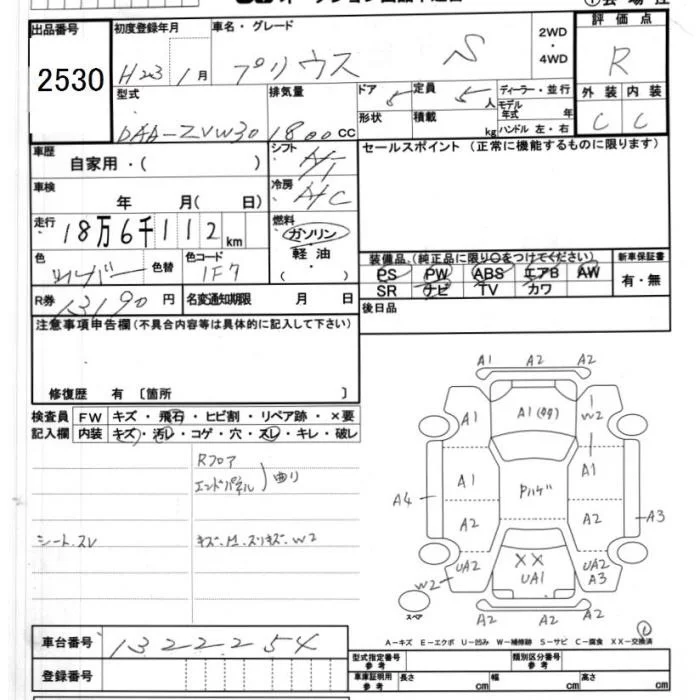 出品番号 初度登録年月 車名・グレード 2WD・4WD 評価点
2530 H23 1月 プリウス S R
型式 排気量 ドア形状 5 定員 5 人 積載 kg ディーラー・並行 モデル年式 年 ハンドル 左・右 外装 内装
DAA-ZVW30 1800cc C C
車歴 自家用・( ) シフト セールスポイント(正常に機能するものに限ります)
車検 年 月( 日) 冷房 A/C
走行 18万6千112km 燃料 ガソリン・軽油・( )
色 シルバー 色替 色コード 1F7
装備品(純正品に限り○をつけてください) 新車保証書
PS PW ABS エアB AW 有・無
SR ナビ TV カワ
R券 13190円 名変通知期限 月 日
後日品
注意事項申告欄(不具合内容等は具体的に記入して下さい)
修復歴 有〔箇所 〕
検査員記入欄 FW キズ・飛石・ヒビ割・リペア跡・×要
内装 キズ・汚レ・コゲ・穴・スレ・キレ・破レ
Rフロア
エンドパネル 曲り
シート.スレ キズ.
A1 A2 A2
A1 A1 W2
A1 Pハゲ A1
A4 A3
A2 A2
UA2 XX UA2
W2 UA1 A3
A2 A2 A2
スペア
A−キズ E−エクボ U−凹み W−補修跡 S−サビ C−腐食 XX−交換済
車台番号 1322254
登録番号
型式指定番号 参考 類別区分番号 参考
車庫証明用 参考 長さ cm 幅 cm 高さ cm